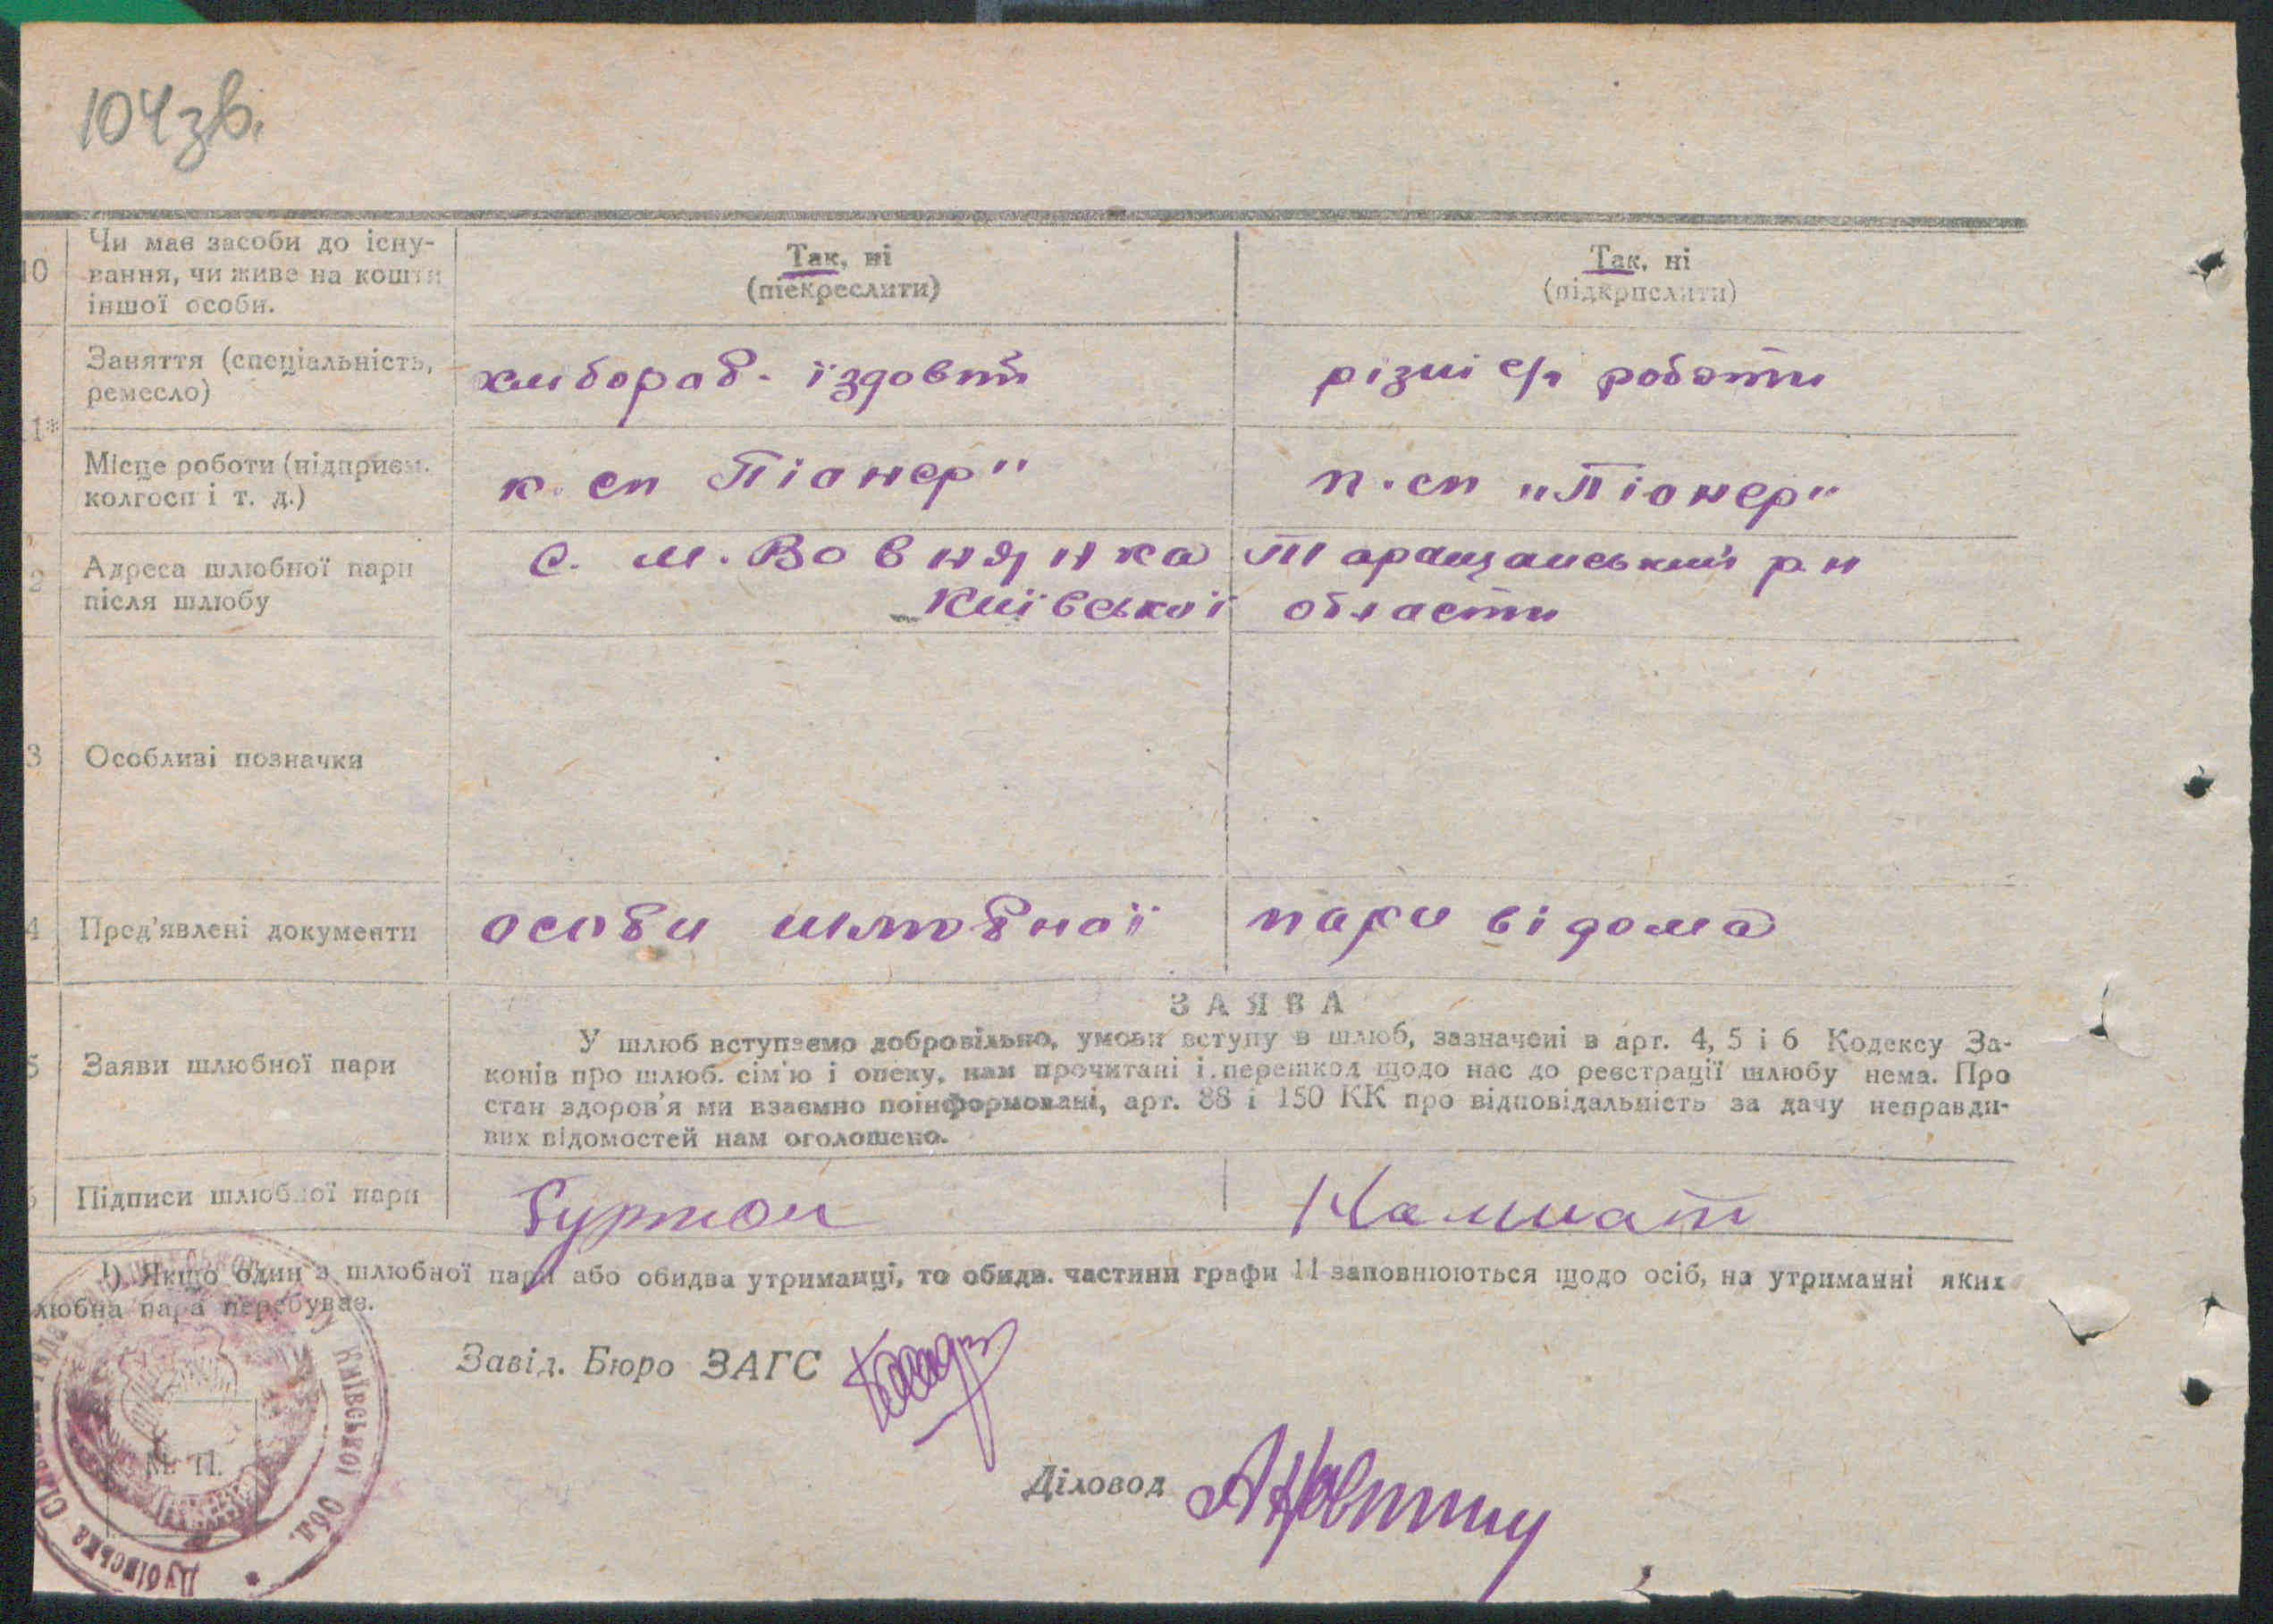 104зв.
10
Чи має засоби до існу-
вання, чи живе на кошти
іншої особи.
Так, ні
(піекреслити)
Так, ні
(підкрислити)
Заняття (спеціальність,
ремесло)
хлібораб - їздовий
різні с/г роботи
1*
Місце роботи (підприєм.
колгосп і т. д.)
к. сп Піонер"
к. сп "Піонер"
2
Адреса шлюбної пари
після шлюбу
с. м. Вовнянка Таращанський р н
Київської області
3
Особливі позначки
4
Пред'явлені документи
особи шлюбної пари відома
5
Заяви шлюбної пари
ЗАЯВА
У шлюб вступаємо добровільно, умови вступу в шлюб, зазначені в арт. 4, 5 і 6 Кодексу За-
конів про шлюб. сім'ю і опеку, нам прочитані і перешкод щодо нас до реєстрації шлюбу нема. Про
стан здоров'я ми взаємно поінформовані, арт. 88 і 150 КК про відповідальність за дачу неправди-
вих відомостей нам оголошено.
Підписи шлюбної пари
1). Якщо один з шлюбної пари або обидва утриманці, то обидв. частини графи 11 заповнюються щодо осіб, на утриманні яких
любна пара перебуває.
Завід. Бюро ЗАГС
Діловод
М. П.
Дубівська
Київської Обл.